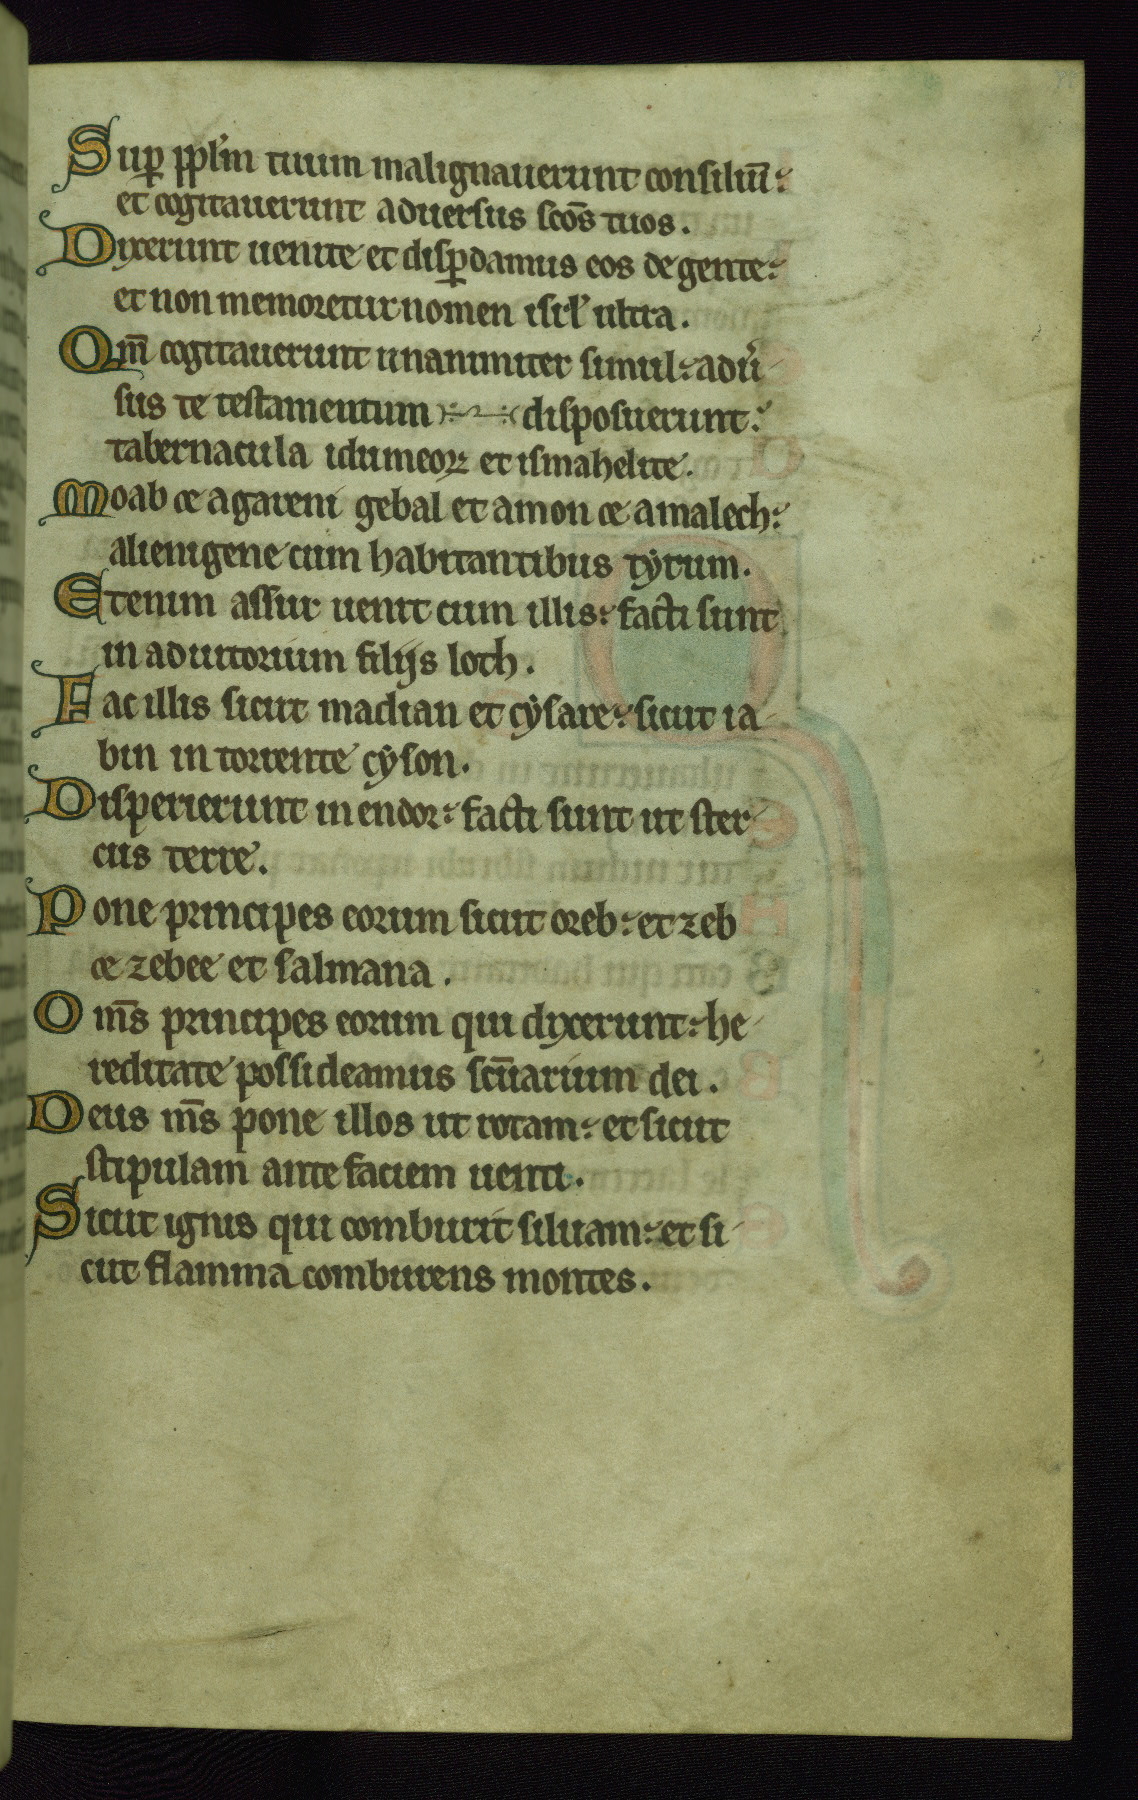 Sup̲ pplm̄ tuum malignauerunt consiliū:
et cogitauerunt aduersus sc̄os tuos.
Dixerunt uenite et disp̲damus eos de gente:
et non memoretur nomen isrl̄ ultra.
Qm̄ cogitauerunt unanimiter simul: adu̓
sus te testamentum disposuerunt:
tabernacula idumeoꝝ et ismahelite.
Moab ce agareni gebal et amon ce amalech:
alienigene cum habitantibus tẏrum.
Etenim assur uenit cum illis: facti sunt
in adiutorium filijs loth.
Fac illis sicut madian et cẏsare: sicut ia
bin in torrente cẏson.
Disperierunt in endor: facti sunt ut ster
cus terre.
Pone principes eorum sicut oreb: et zeb
ce zebee et salmana.
Om̄s principes eorum qui dixerunt: he
reditate possideamus sc̄uarium dei.
Deus m̄s pone illos ut rotam: et sicut
stipulam ante faciem uenti.
Sicut ignis qui comburit siluam: et si
cut flamma comburens montes.